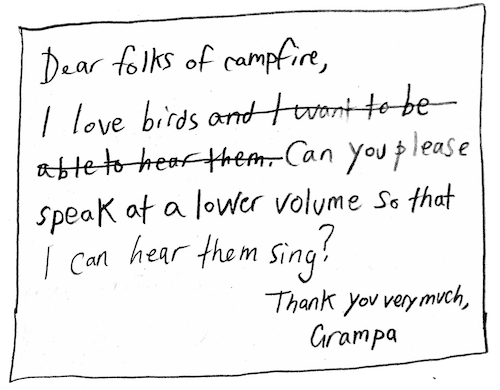 Dear folks of campfire,
I love birds and I want to be
able to hear them. Can you please
speak at a lower volume so that
I can hear them sing?
Thank you very much,
Grampa